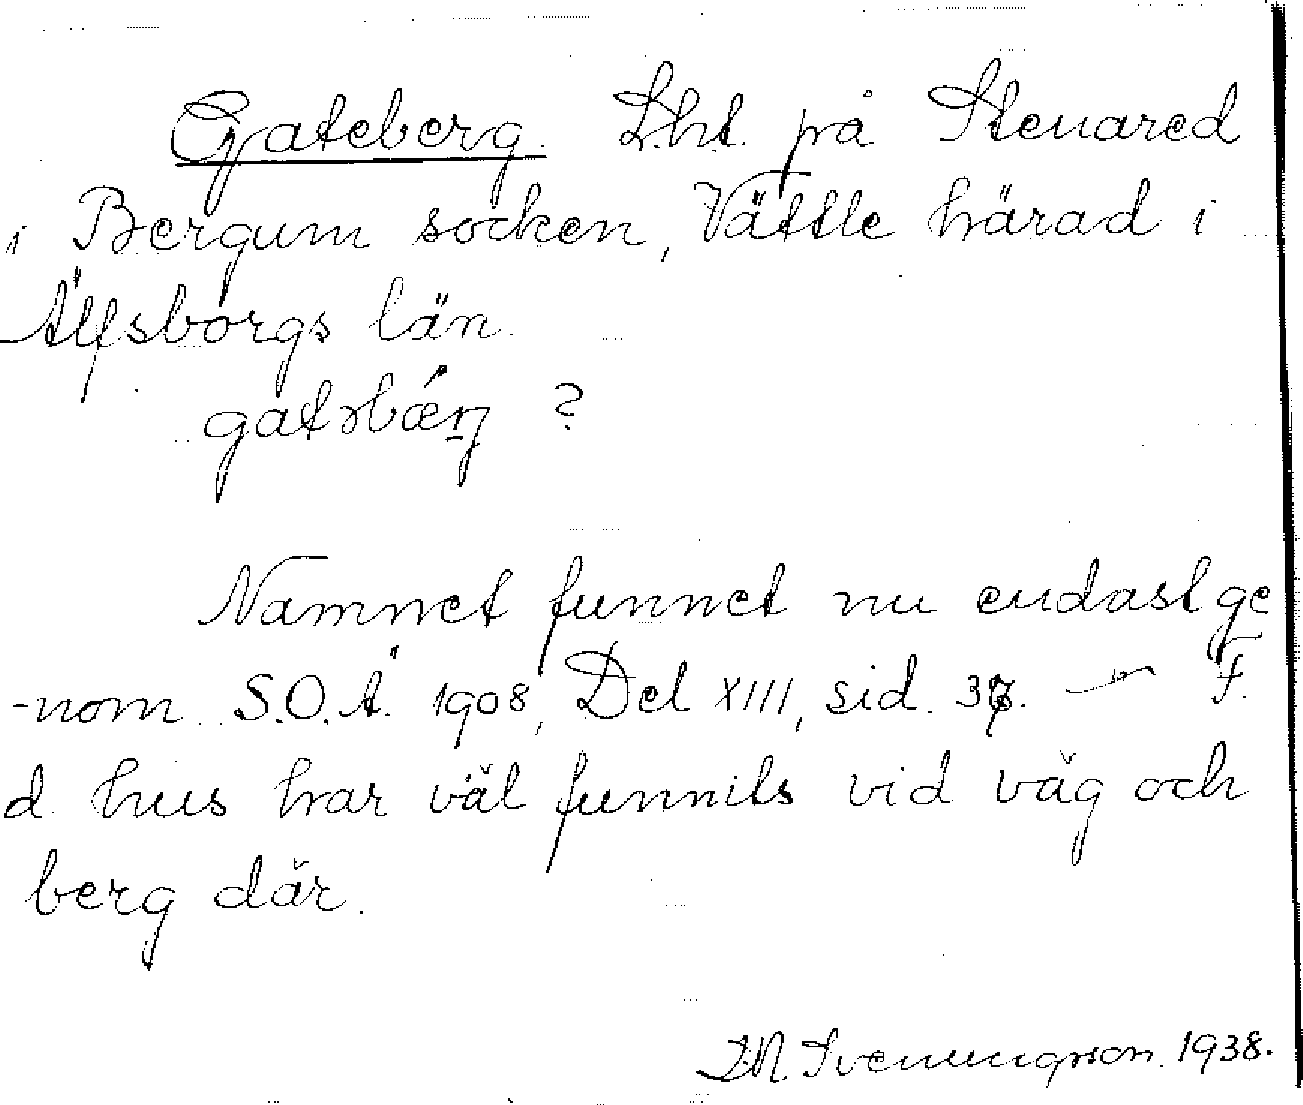 Gateberg. Lht. på Stenared
i Bergum socken, Vättle härad i
Älfsborgs län.
?
Namnet funnet nu endast ge
-nom S.O.Ä. 1908, Del XIII, sid. 37. — F.
d. hus har väl funnits vid väg och
berg där.
Svenungsson. 1938.